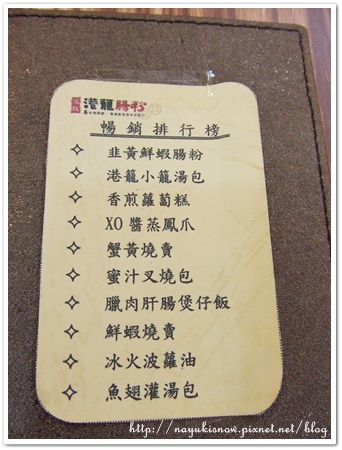 港籠腸粉
暢銷排行榜
韭黃鮮蝦腸粉
港籠小籠湯包
香煎蘿蔔糕
XO醬蒸鳳爪
蟹黃燒賣
蜜汁叉燒包
臘肉肝腸煲仔飯
鮮蝦燒賣
冰火波蘿油
魚翅灌湯包
http://nayukisnow.pixnet.net/blog